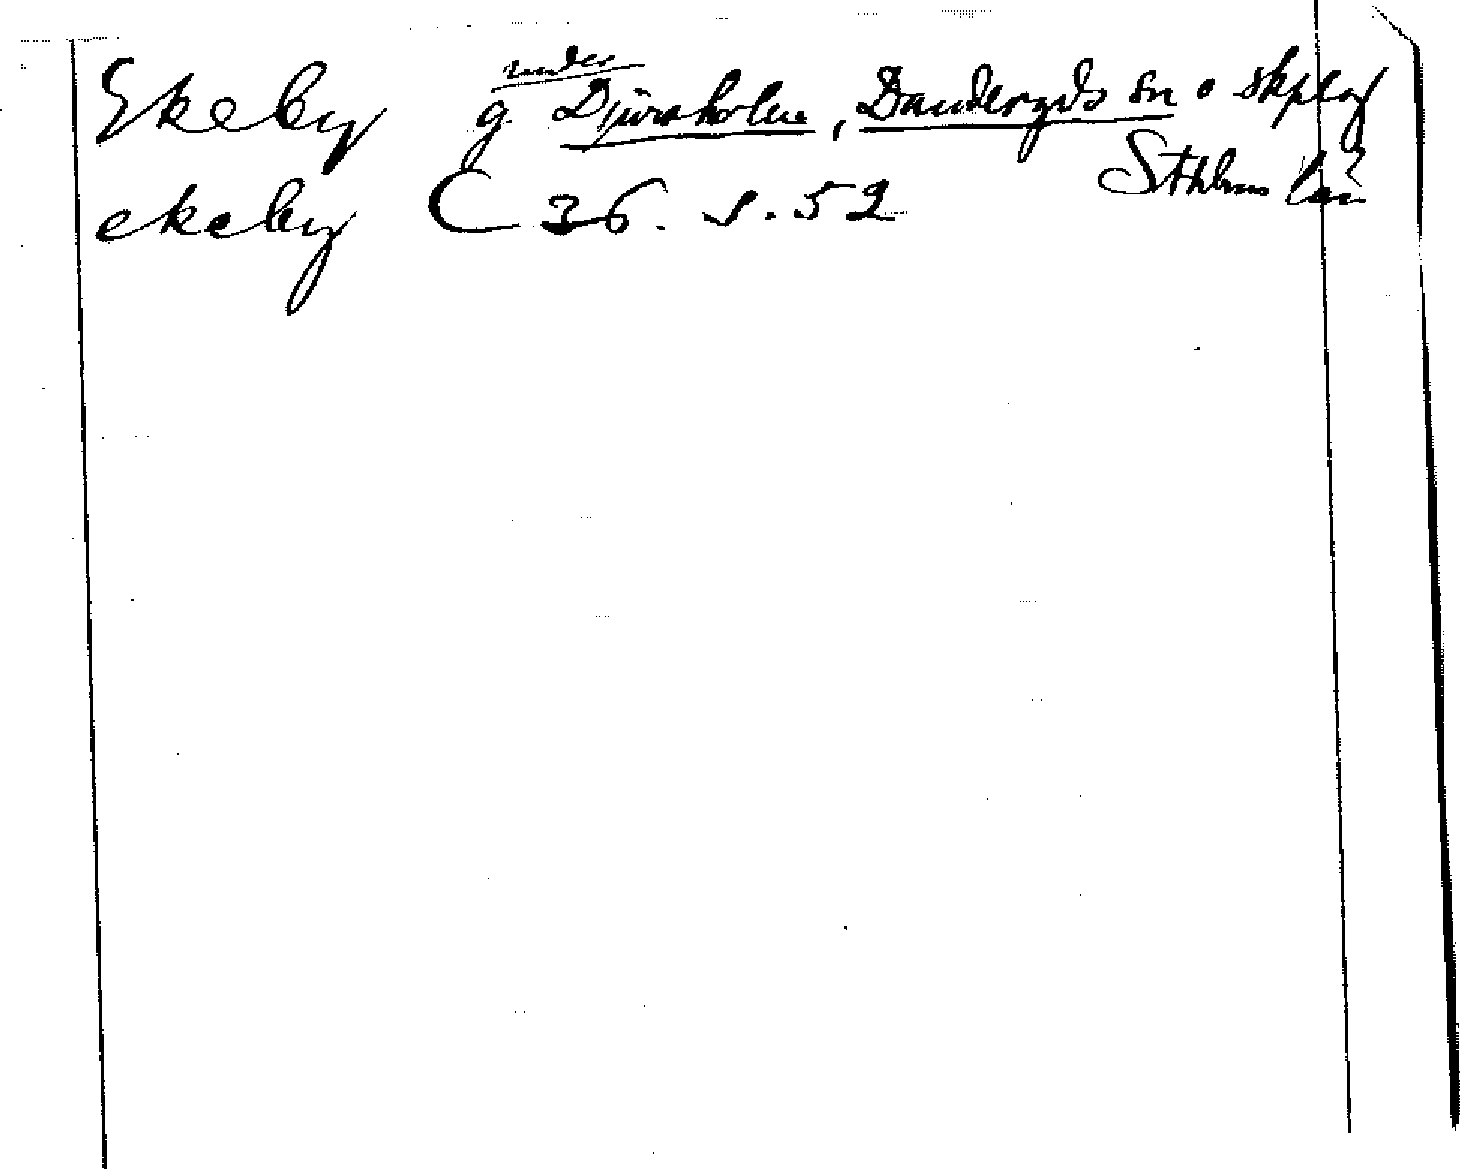 Ekeby g. under Djursholm, Danderyds sn o skplag
Sthlms län
ekeby C 36. s. 52